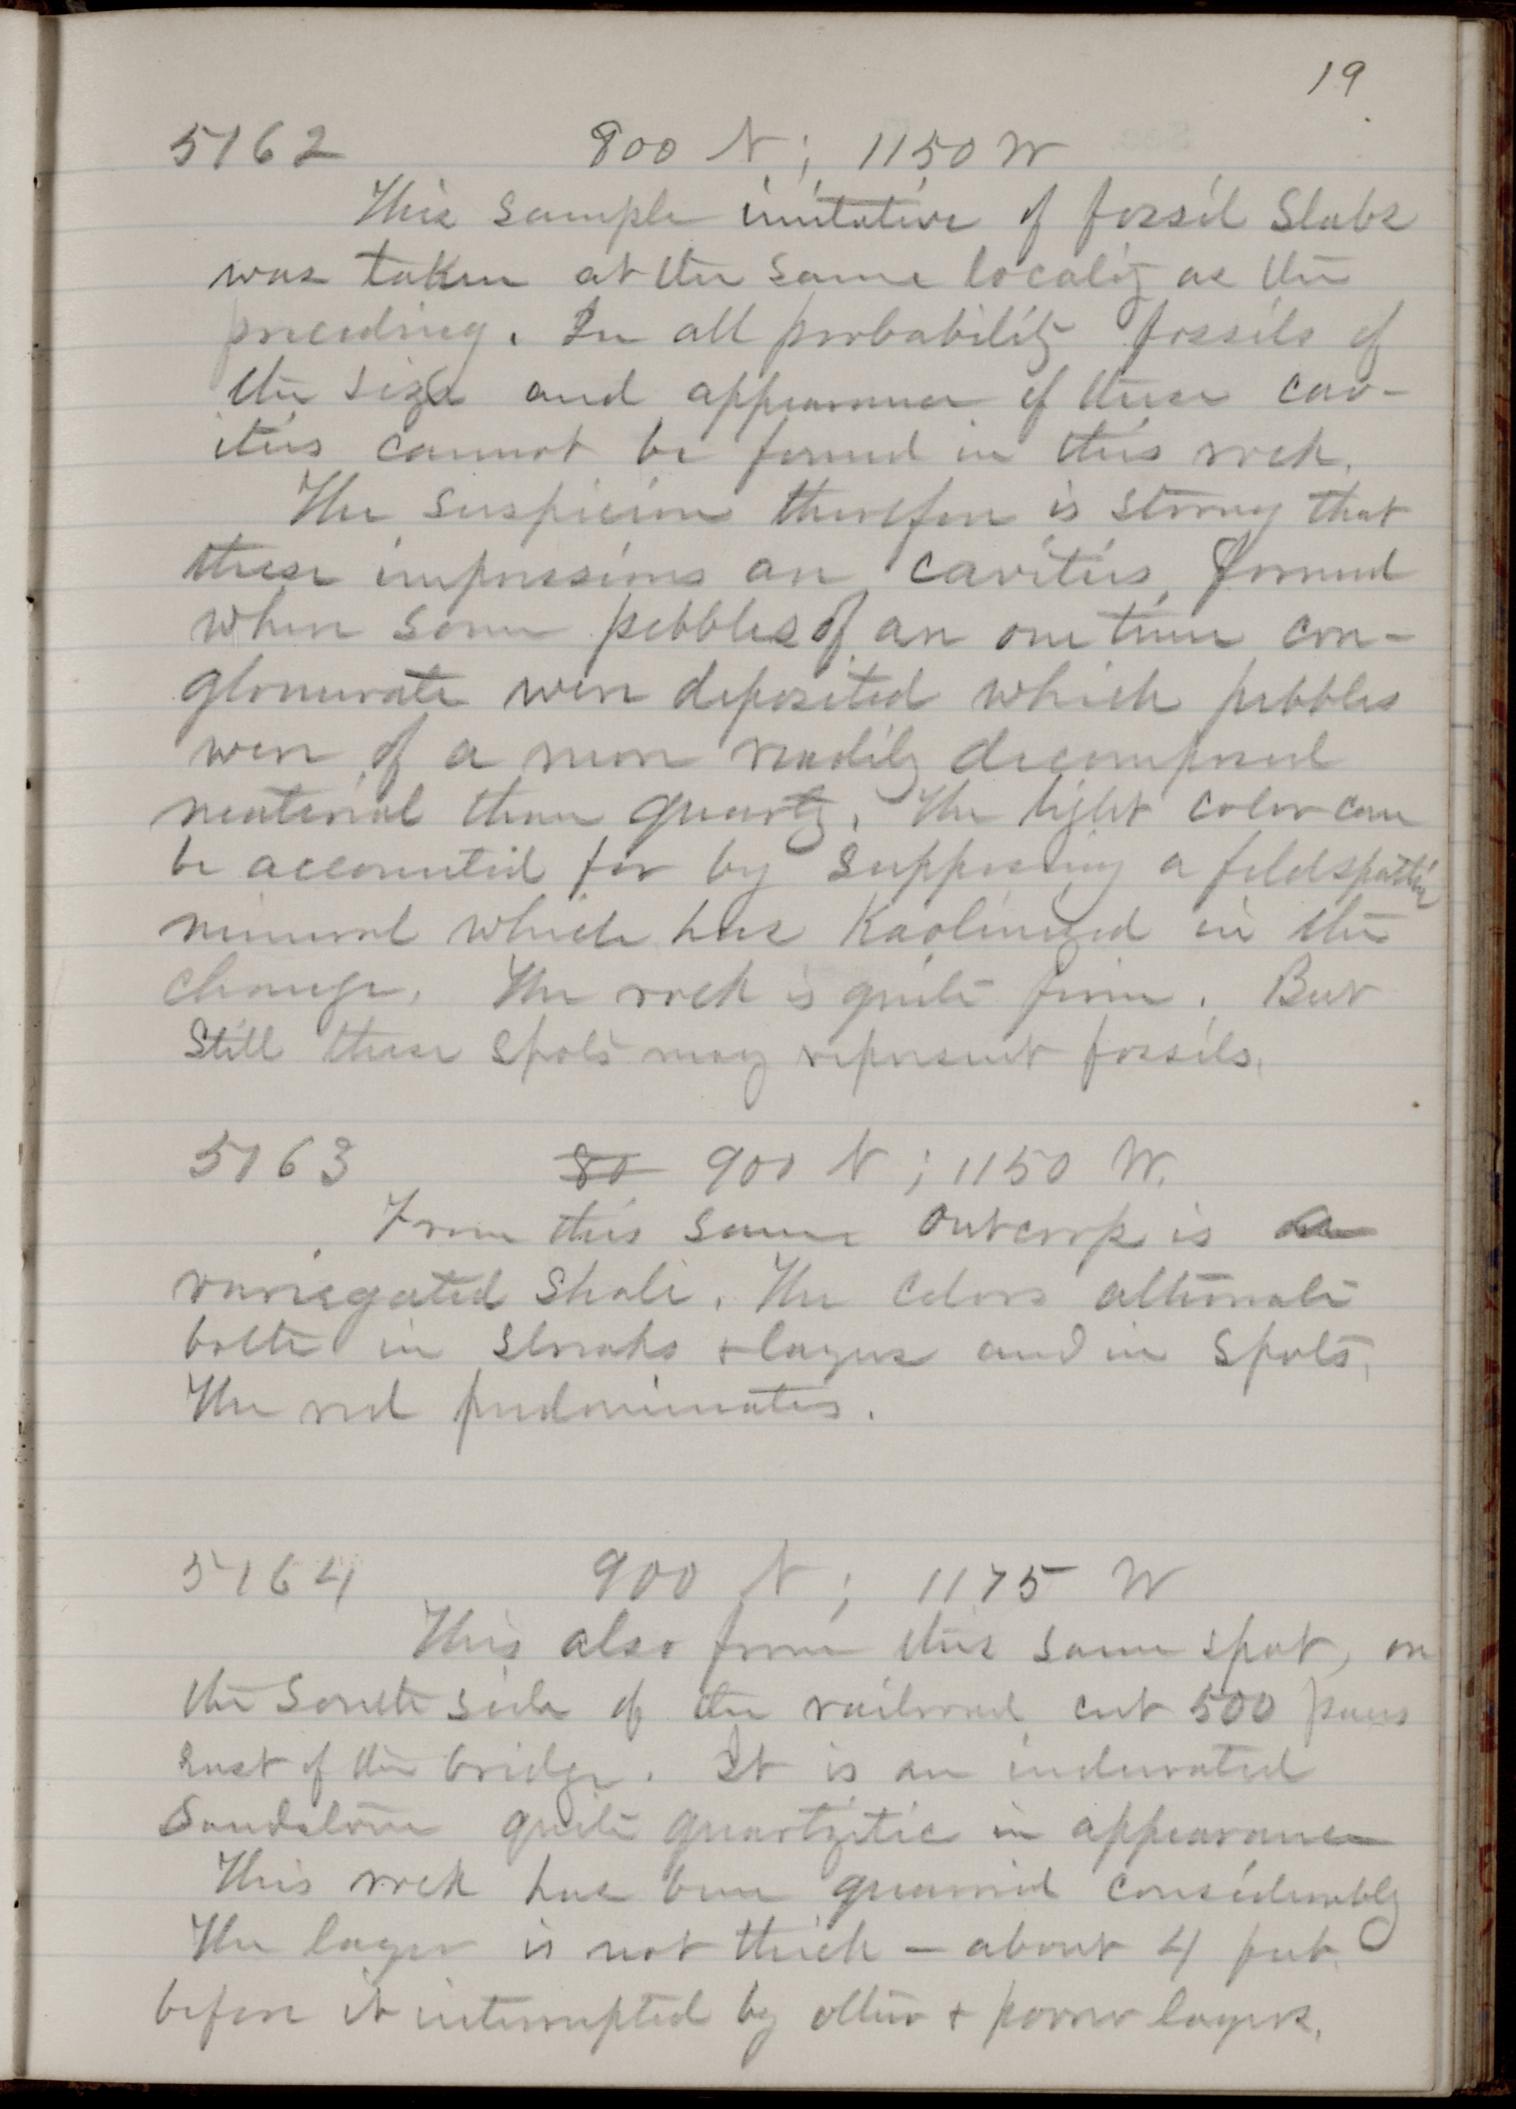 19
5162 800 N; 1150 W
This sample imitative of fossil slabs
was taken at the same locality as the
preceding. In all probability fossils of
the size and appearance of these cav-
ities cannot be found in this rock.
The suspicion therefore is strong that
these impressions are cavities, formed
when some pebbles of an one time con-
glomerate were deposited which pebbles
were of a more readily decomposed
material than quartz. The light color can
be accounted for by supposing a feldspathic
mineral which has Kaolinized in the
change. The rock is quite firm. But
still these spots may represent fossils.
5163 80 900 N; 1150 W.
From this same outcrop is a
variegated shale. The colors alternate
both in streaks & layers and in spots.
The red predominates.
5164 900 N; 1175 W
This also from this same spot, on
the South side of the railroad cut 500 paces
east of the bridge. It is an indurated
Sandstone quite quartzitic in appearance
This rock has been quarried considerably
The layer is not thick — about 4 feet
before it interrupted by other & poorer layers.